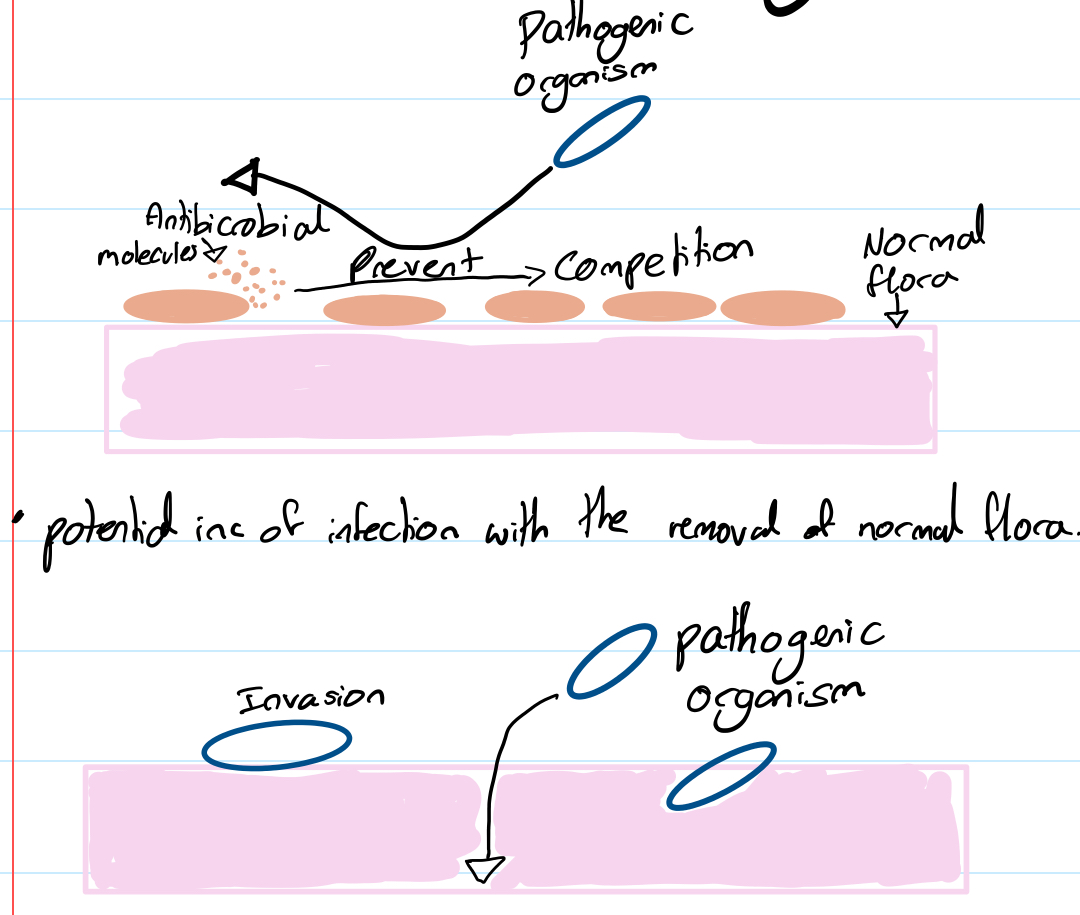 Pathogenic
organism
Antibicrobial
molecules
Prevent
Competition
Normal
flora
• potential inc of infection with the removal of normal flora.
Invasion
pathogenic
organism